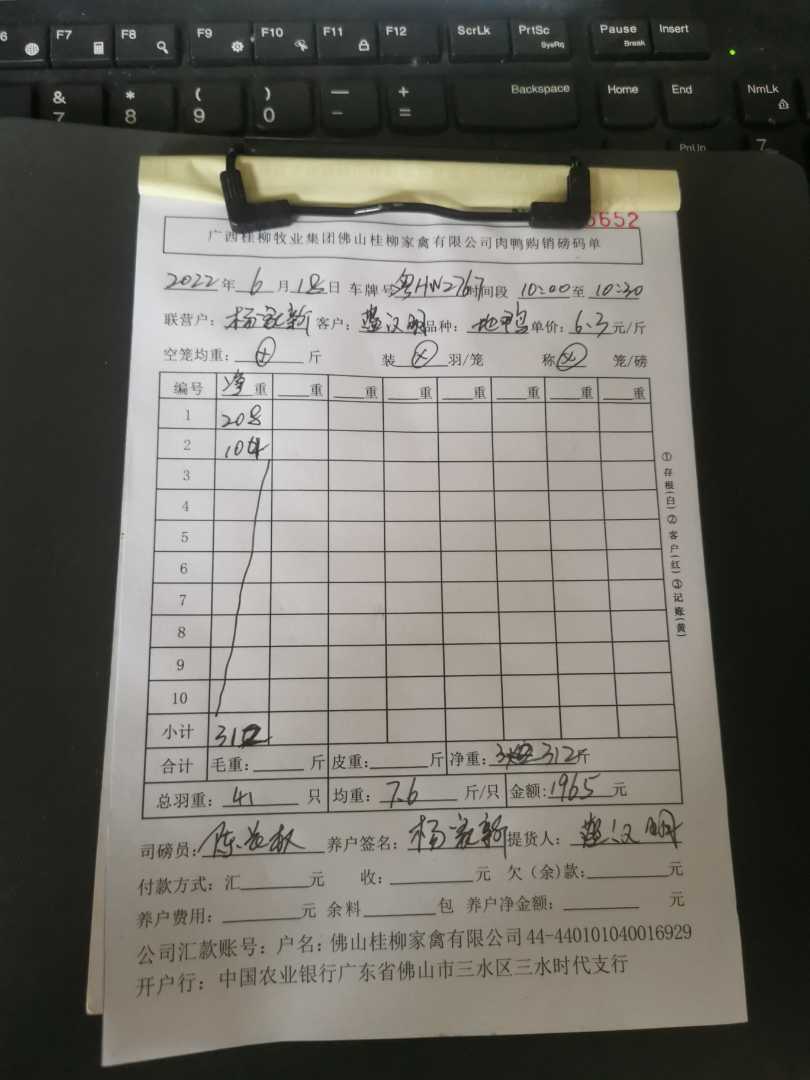 F7 F8 F9 F10 F11 F12 ScrLk PrtSc SysRq Pause Break Insert
& 7 * 8 ( 9 ) 0 — - + = Backspace Home End NmLk
PgUp 7
5652
广西桂柳牧业集团佛山桂柳家禽有限公司肉鸭购销磅码单
2022年 6 月 18日 车牌号粤HW2767时间段 10:00至 10:30
联营户: 杨家新 客户: 汉明品种: 地鸭 单价: 6.3元/斤
空笼均重: 斤 装 羽/笼 称 笼/磅
编号 净重 重 重 重 重 重 重 重
1 208
2 104
3
4
5
6
7
8
9
10
小计 312
合计 毛重: 斤 皮重: 斤 净重: 312斤
总羽重: 41 只 均重: 7.6 斤/只 金额: 1965 元
司磅员: 陈 养户签名: 杨家新 提货人: 汉明
付款方式: 汇 元 收: 元 欠(余)款: 元
养户费用: 元 余料 包 养户净金额: 元
公司汇款账号: 户名: 佛山桂柳家禽有限公司 44-440101040016929
开户行: 中国农业银行广东省佛山市三水区三水时代支行
①存根(白)②客户(红)③记账(黄)